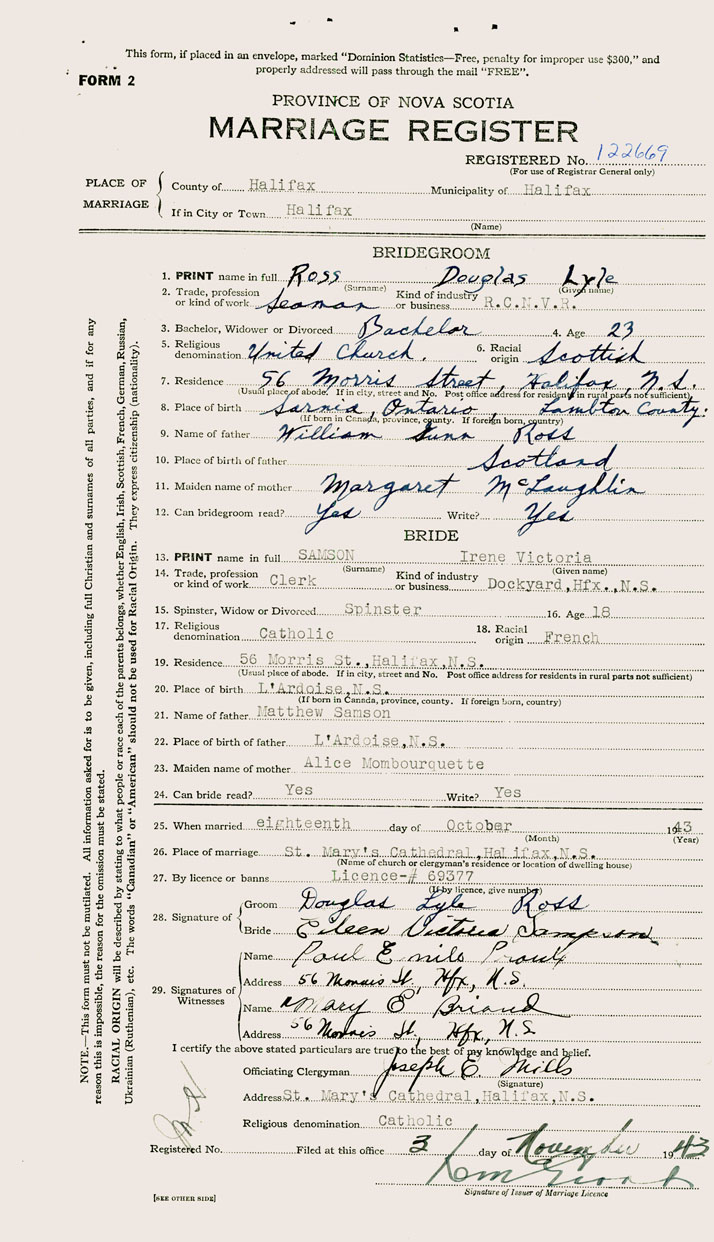 This form, if placed in an envelope, marked "Dominion Statistics—Free, penalty for improper use $300," and
properly addressed will pass through the mail "FREE".
FORM 2
PROVINCE OF NOVA SCOTIA
MARRIAGE REGISTER
REGISTERED No. 122669
(For use of Registrar General only)
PLACE OF MARRIAGE
County of Halifax Municipality of Halifax
If in City or Town Halifax
(Name)
BRIDEGROOM
1. PRINT name in full Ross Douglas Lyle
(Surname) (Given name)
2. Trade, profession or kind of work Seaman Kind of industry or business R.C.N.V.R.
3. Bachelor, Widower or Divorced Bachelor 4. Age 23
5. Religious denomination United Church. 6. Racial origin Scottish
7. Residence 56 Morris Street, Halifax, N.S.
(Usual place of abode. If in city, street and No. Post office address for residents in rural parts not sufficient)
8. Place of birth Sarnia, Ontario, Lambton County.
(If born in Canada, province, county. If foreign born, country)
9. Name of father William Gunn Ross
10. Place of birth of father Scotland
11. Maiden name of mother Margaret McLaughlin
12. Can bridegroom read? Yes Write? Yes
BRIDE
13. PRINT name in full SAMSON Irene Victoria
(Surname) (Given name)
14. Trade, profession or kind of work Clerk Kind of industry or business Dockyard,Hfx.,N.S.
15. Spinster, Widow or Divorced Spinster 16. Age 18
17. Religious denomination Catholic 18. Racial origin French
19. Residence 56 Morris St.,Halifax,N.S.
(Usual place of abode. If in city, street and No. Post office address for residents in rural parts not sufficient)
20. Place of birth L'Ardoise,N.S.
(If born in Canada, province, county. If foreign born, country)
21. Name of father Matthew Samson
22. Place of birth of father L'Ardoise,N.S.
23. Maiden name of mother Alice Mombourquette
24. Can bride read? Yes Write? Yes
25. When married eighteenth day of October 1943
(Month) (Year)
26. Place of marriage St. Mary's Cathedral,Halifax,N.S.
(Name of church or clergyman's residence or location of dwelling house)
27. By licence or banns Licence-# 69377
(If by licence, give number)
28. Signature of
Groom Douglas Lyle Ross
Bride Eileen Victoria Sampson
29. Signatures of Witnesses
Name Paul Emile Proulx
Address 56 Morris St, Hfx, N.S.
Name Mary E Briand
Address 56 Morris St, Hfx, N.S
I certify the above stated particulars are true to the best of my knowledge and belief.
Officiating Clergyman Joseph E. Mills
(Signature)
Address St. Mary's Cathedral,Halifax,N.S.
Religious denomination Catholic
Registered No. Filed at this office 3 day of November 1943
Signature of Issuer of Marriage Licence
[SEE OTHER SIDE]
NOTE.—This form must not be mutilated. All information asked for is to be given, including full Christian and surnames of all parties, and if for any
reason this is impossible, the reason for the omission must be stated.
RACIAL ORIGIN will be described by stating to what people or race each of the parents belongs, whether English, Irish, Scottish, French, German, Russian,
Ukrainian (Ruthenian), etc. The words "Canadian" or "American" should not be used for Racial Origin. They express citizenship (nationality).